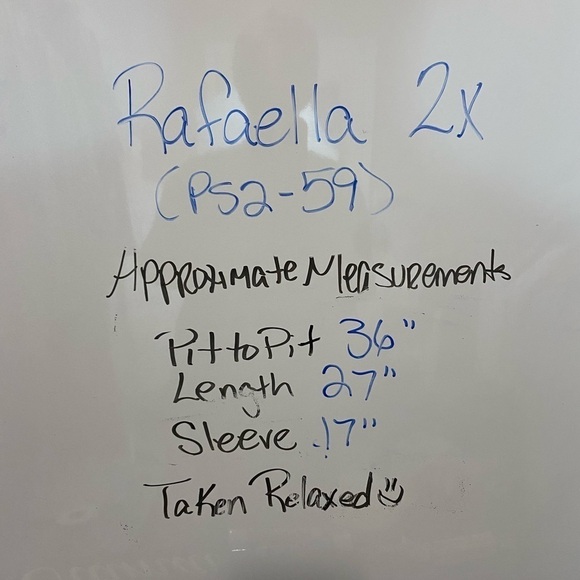 Rafaella 2X
(PS2-59)
Approximate Measurements
Pit to Pit 36"
Length 27"
Sleeve 17"
Taken Relaxed